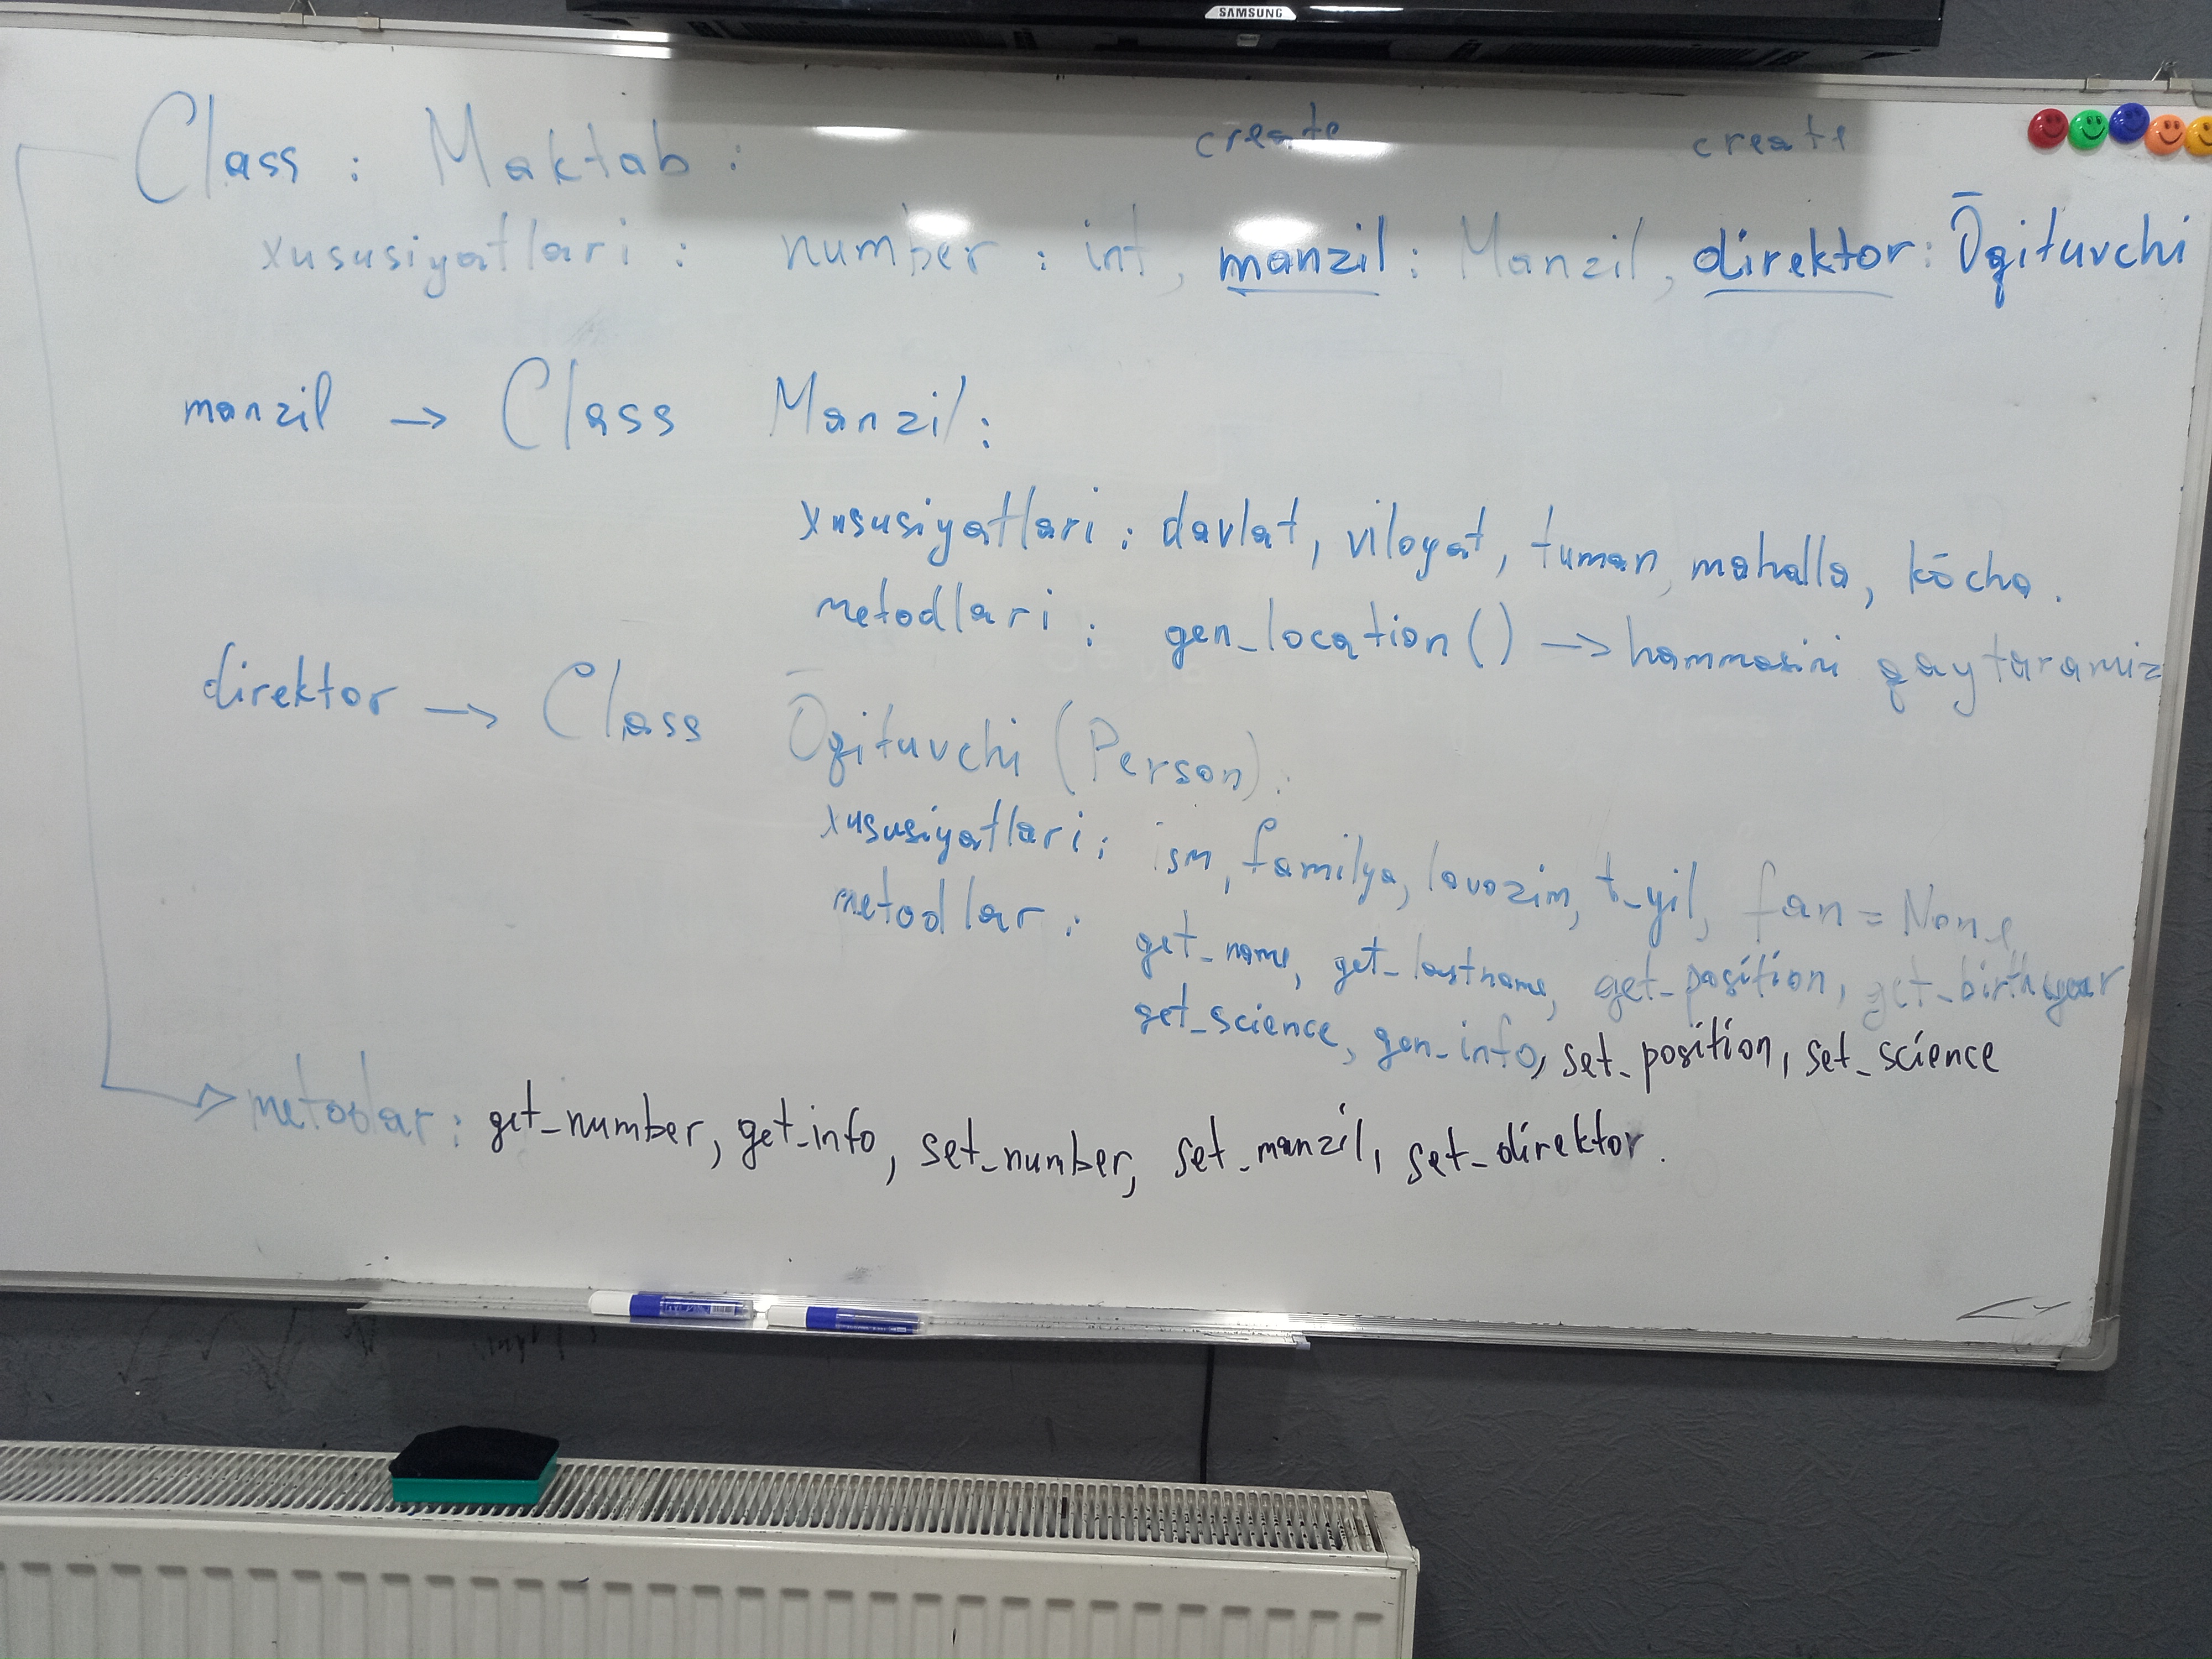 SAMSUNG
create create
Class : Maktab :
xususiyatlari : number : int, manzil : Manzil, direktor : Ōqituvchi
manzil → Class Manzil :
xususiyatlari : davlat, viloyat, tuman, mahalla, kōcha.
metodlari : gen_location() → hammasini qaytaramiz
direktor → Class Ōqituvchi (Person) :
xususiyatlari : ism, familya, lavozim, t_yil, fan = None,
metodlar : get_name, get_lastname, get_position, get_birthyear
get_science, gen_info, set_position, set_science
metodlar : get_number, get_info, set_number, set_manzil, set_direktor.